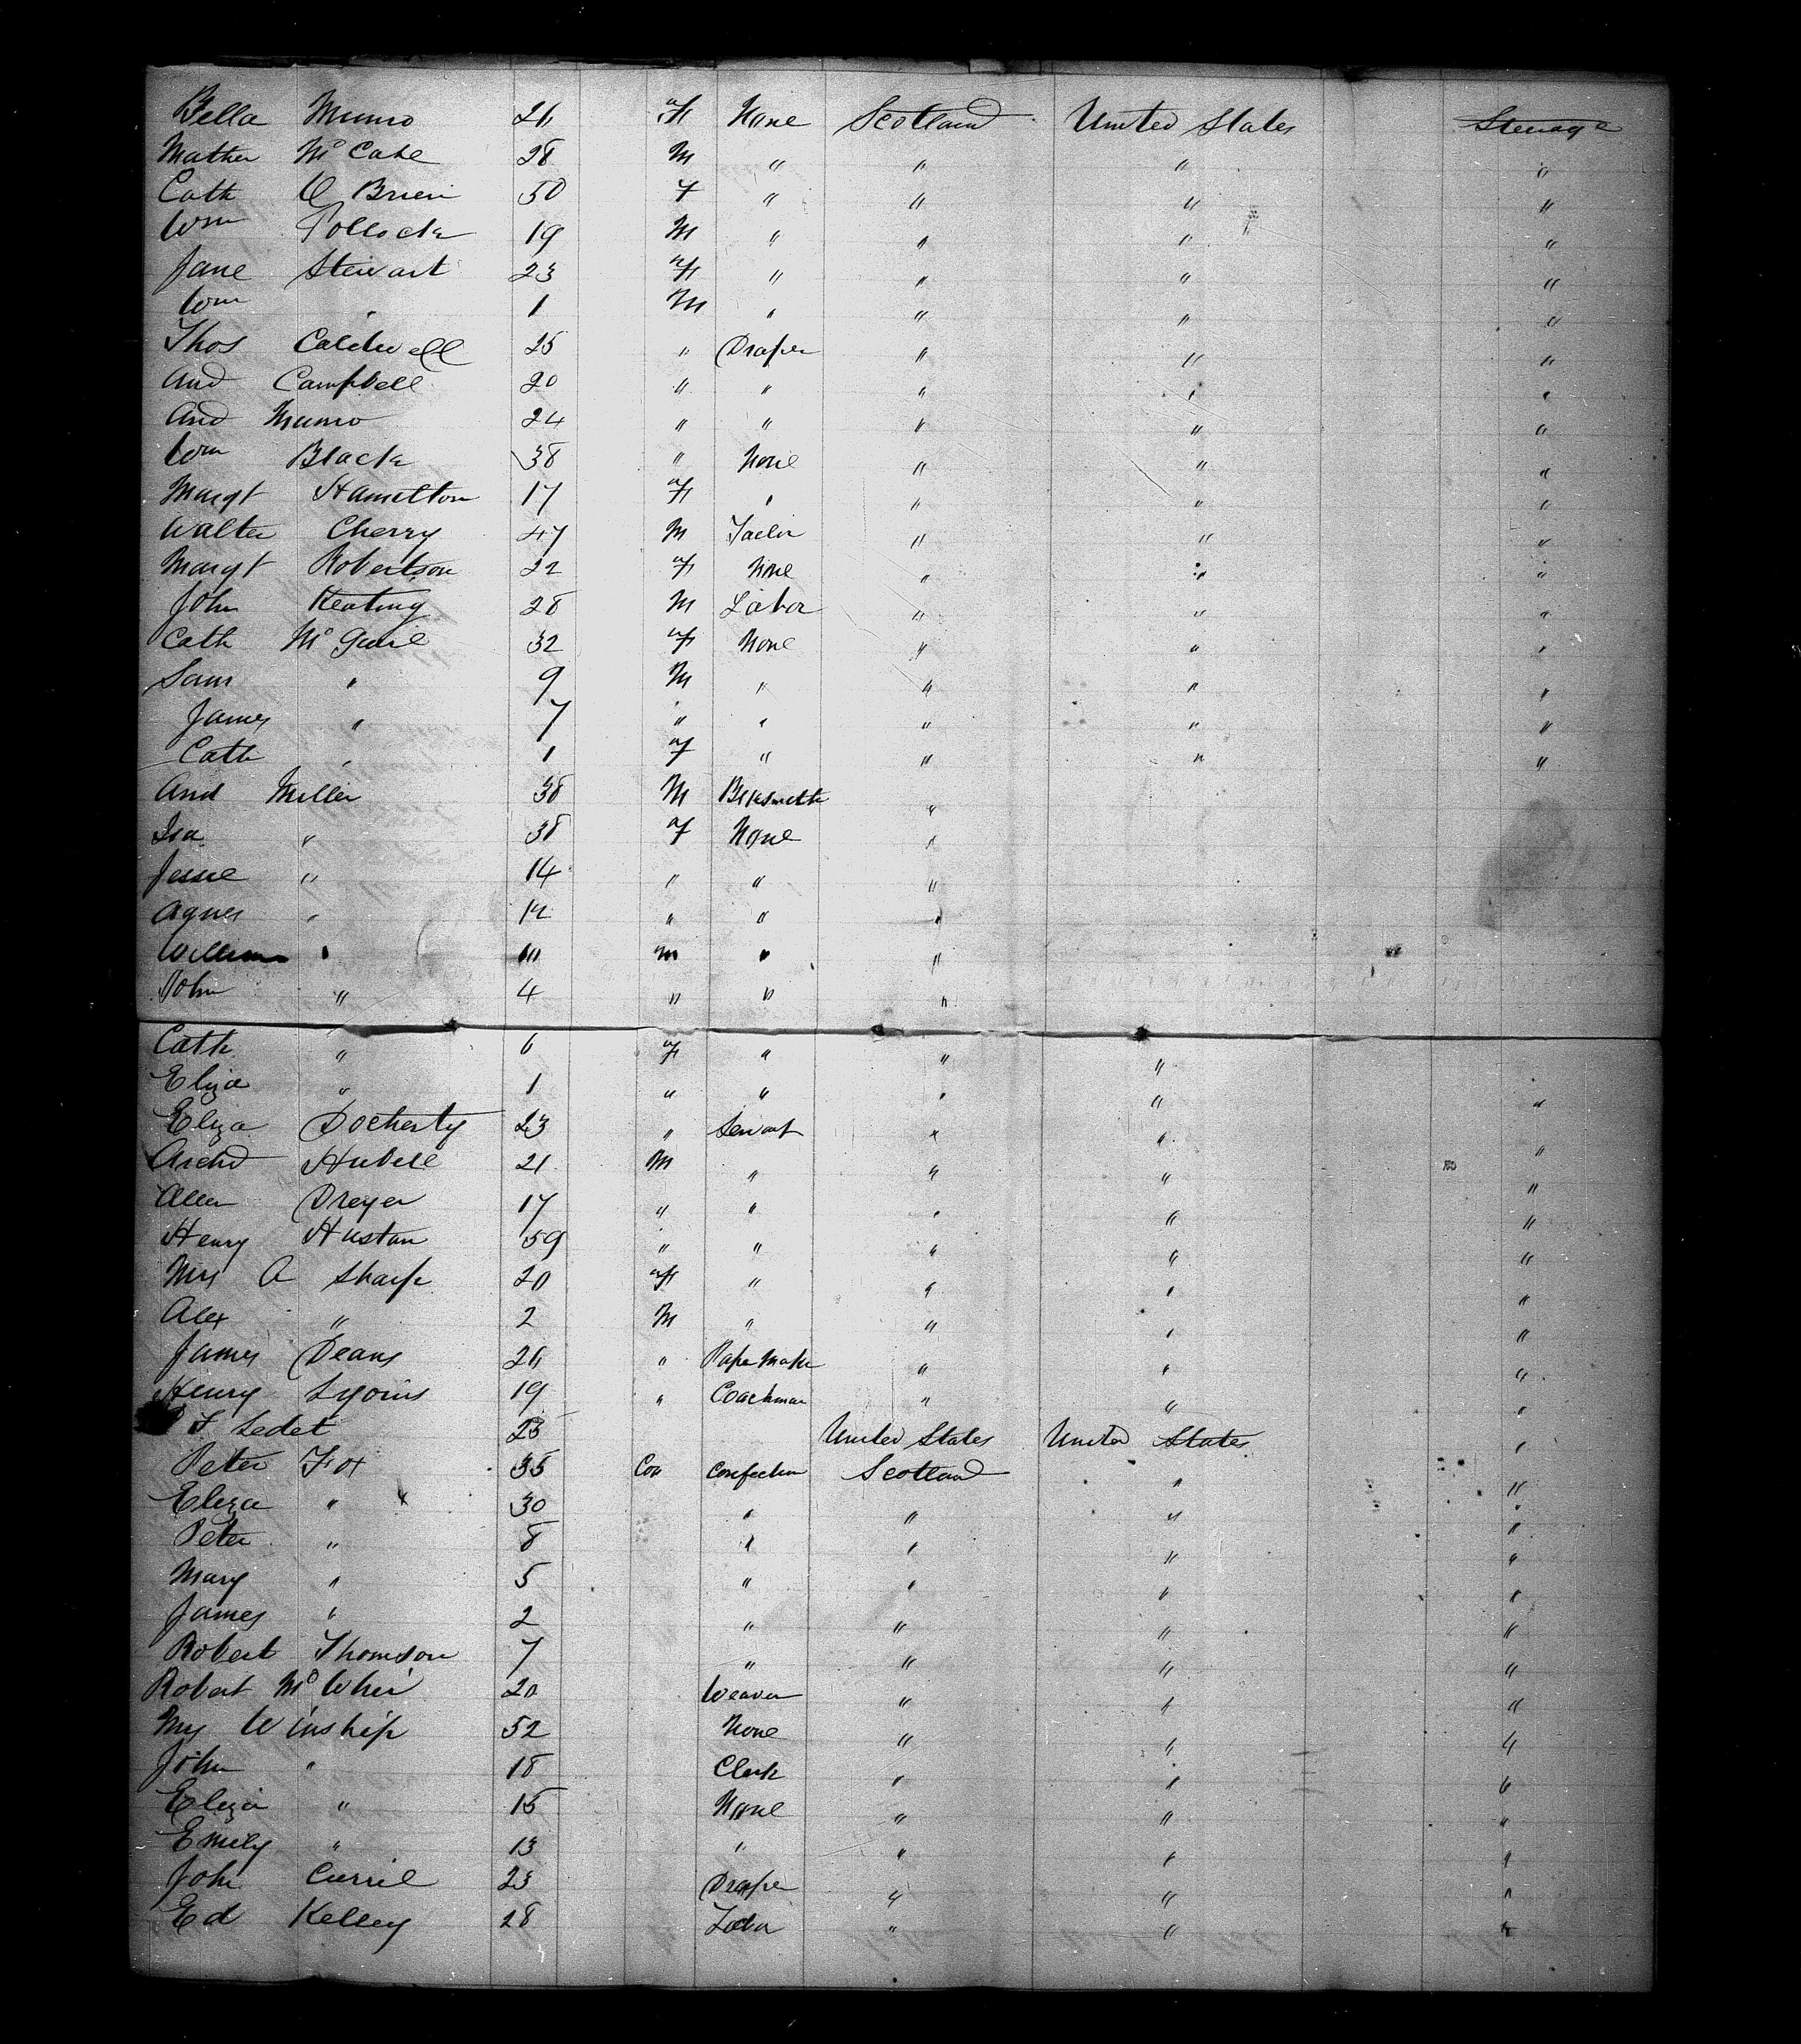 Bella Munro 26 F None Scotland United States Steerage
Mather McCabe 28 M " " " "
Cath O Brien 50 F " " " "
Wm Pollock 19 M " " " "
Jane Stewart 23 F " " " "
Wm " 1 M " " " "
Thos Caldwell 25 " Draper " " "
And Campbell 20 " " " " "
And Munro 24 " " " " "
Wm Black 38 " None " " "
Margt Hamilton 17 F " " " "
Walter Cherry 47 M Tailor " " "
Margt Robertson 22 F None " " "
John Keating 28 M Labor " " "
Cath McGuire 32 F None " " "
Sam " 9 M " " " "
James " 7 " " " " "
Cath " 1 F " " " "
And Miller 38 M Blksmith "
Isa " 38 F None "
Jessie " 14 " " "
Agnes " 12 " " "
William " 10 M " "
John " 4 " " "
Cath " 6 F " " "
Eliza " 1 " " " " "
Eliza Docherty 23 " Servant " " "
Archd Hubell 21 M " " " "
Allen Dreyer 17 " " " " "
Henry Hustan 59 " " " " "
Mrs A Sharp 20 F " " " "
Alex " 2 M " " " "
James Deans 26 " Pape Make " " "
Henry Lyons 19 " Coachman " " "
F Ledet 25 United States United States "
Peter Fox 35 Con Confection Scotland " "
Eliza " 30 " " " "
Peter " 8 " " " "
Mary " 5 " " " "
James " 2 " " " "
Robert Thomson 7 " " " "
Robert McWhir 20 Weaver " " "
Mrs Winship 52 None " " "
John " 18 Clerk " " "
Eliza " 15 None " " "
Emily " 13 " " " "
John Currie 23 Draper " " "
Ed Kelley 28 Labor " " "